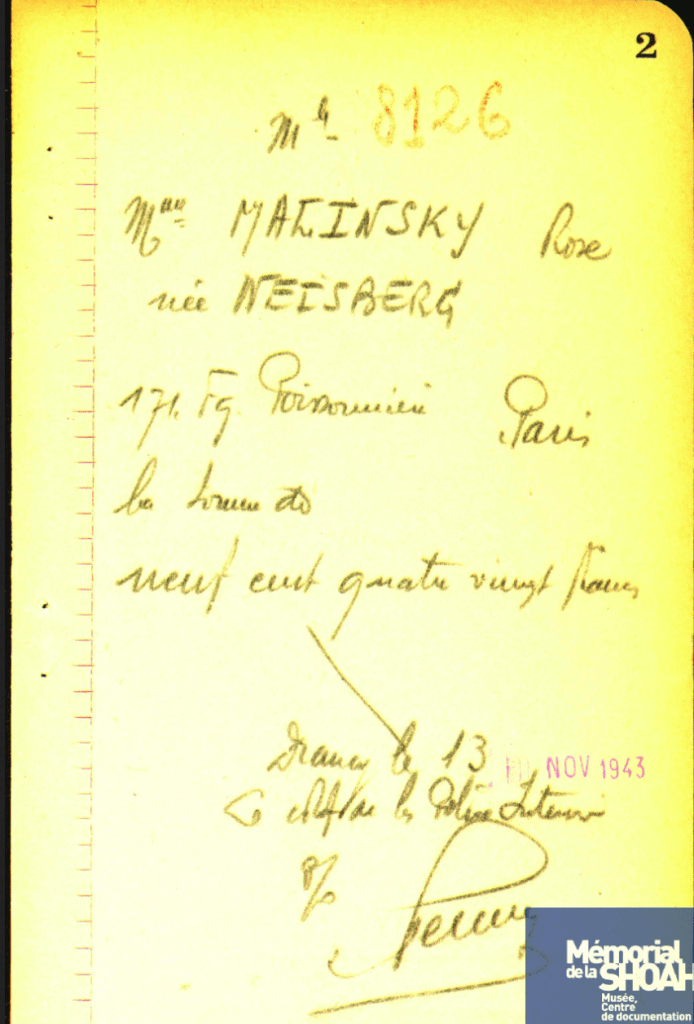 2
Mle 8126
Mme MALINSKY Rose
née WEISBERG
171. Fg Poissonnière Paris
la somme de
neuf cent quatre vingt francs
Drancy le 13 NOV 1943
Le chef de la Police Intérieure
Mémorial
de la SHOAH
Musée,
Centre
de documentation